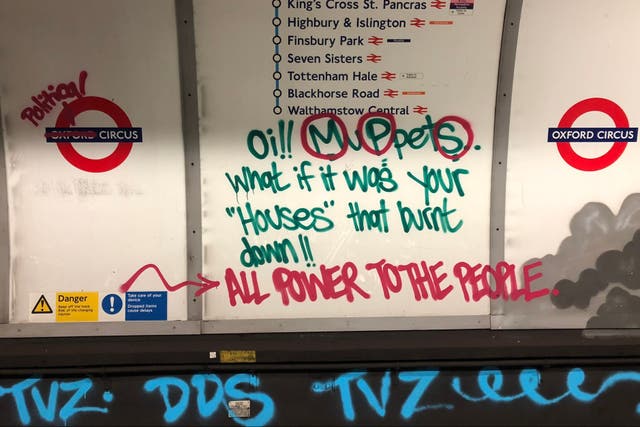 King's Cross St. Pancras
Highbury & Islington
Finsbury Park
Seven Sisters
Tottenham Hale
Blackhorse Road
Walthamstow Central
Political
OXFORD CIRCUS
OXFORD CIRCUS
Oi!! MuPpets.
What if it was your
"Houses" that burnt
down!!
ALL POWER TO THE PEOPLE.
Danger
Keep off the track
Take care of your
device
Dropped items
cause delays
TVZ. DDS TVZ